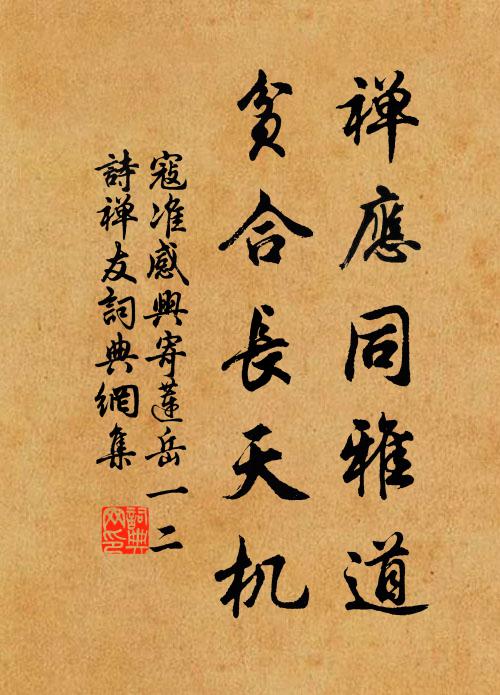 禅應同雅道
贫合長天机
寇准感興寄蓮岳一二
詩禅友詞典網集
詞典網印